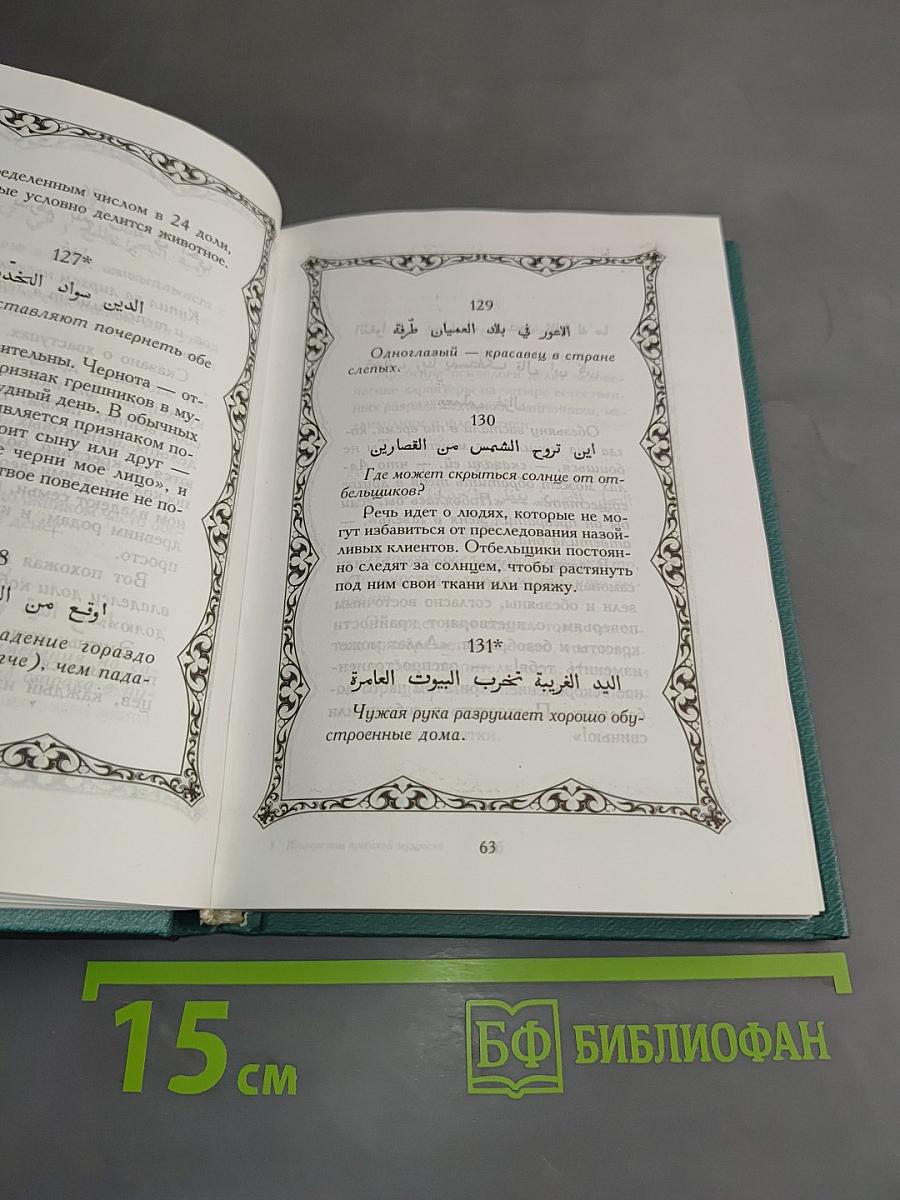 ределенным числом в 24 доли,
ые условно делится животное.
127*
الدين سواد الخد
ставляют почернеть обе
ительны. Чернота — от-
ризнак грешников в му-
удный день. В обычных
является признаком по-
оит сыну или друг —
е черни мое лицо», и
твое поведение не по-
8
اوقع من ال
адение гораздо
гче), чем пада-
129
الاعور في بلاد العميان طرفة
Одноглазый — красавец в стране
слепых.
130
اين تروح الشمس من القصارين
Где может скрыться солнце от от-
бельщиков?
Речь идет о людях, которые не мо-
гут избавиться от преследования назой-
ливых клиентов. Отбельщики постоян-
но следят за солнцем, чтобы растянуть
под ним свои ткани или пряжу.
131*
اليد الغريبة تخرب البيوت العامرة
Чужая рука разрушает хорошо обу-
строенные дома.
63
15 см
БФ БИБЛИОФАН